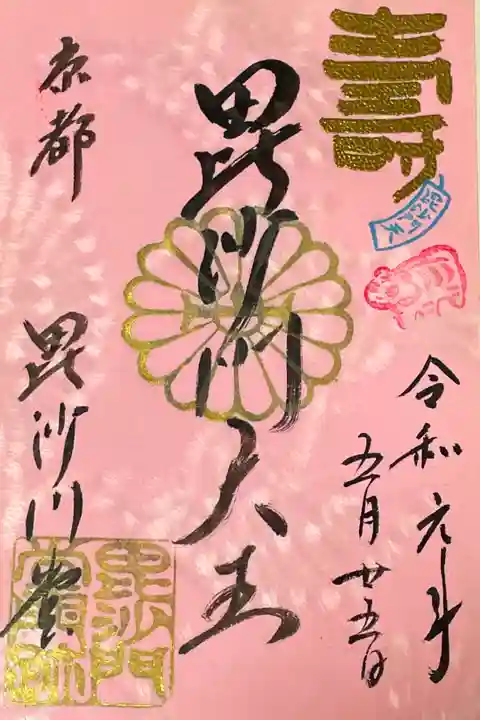 寿
令和元年
五月廿五日
毘沙門天王
京都
毘沙門堂
毘沙門